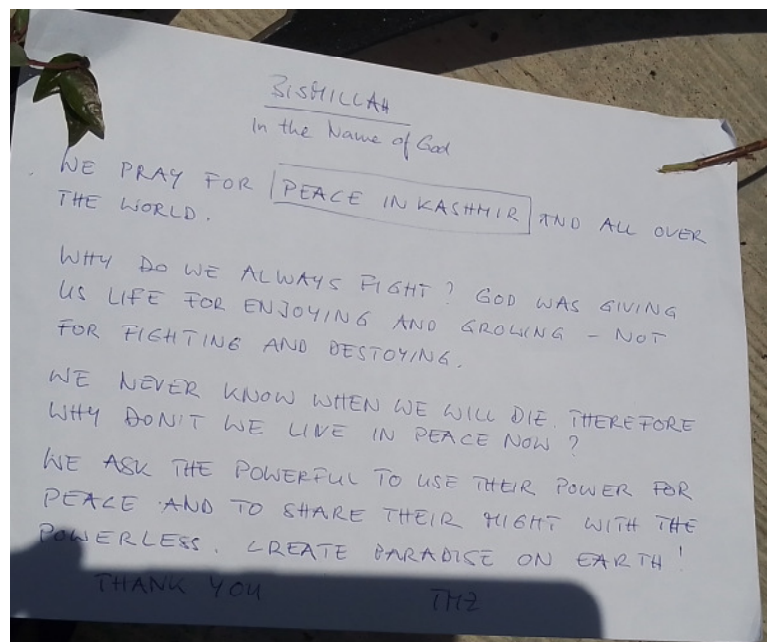 BISMILLAH
In the Name of God
WE PRAY FOR PEACE IN KASHMIR AND ALL OVER
THE WORLD.
WHY DO WE ALWAYS FIGHT? GOD WAS GIVING
US LIFE FOR ENJOYING AND GROWING - NOT
FOR FIGHTING AND DESTOYING.
WE NEVER KNOW WHEN WE WILL DIE. THEREFORE
WHY DON'T WE LIVE IN PEACE NOW?
WE ASK THE POWERFUL TO USE THEIR POWER FOR
PEACE AND TO SHARE THEIR MIGHT WITH THE
POWERLESS. CREATE PARADISE ON EARTH!
THANK YOU TMZ